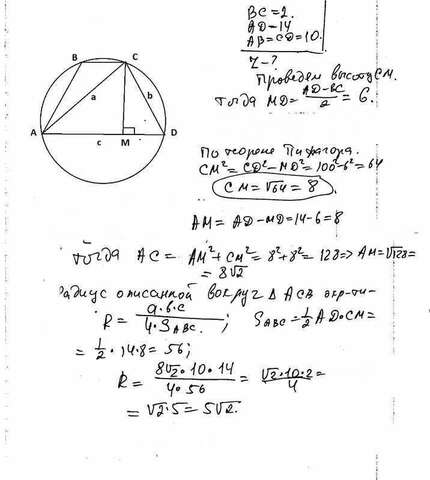 BC=2.
AD-14
AB=CD=10.
r-?
Проведем высоту CM.
тогда MD= (AD-BC)/2 = 6.
B C
a b
A c M D
По теореме Пифагора.
CM²= CD²-MD²= 100²-6²= 64
CM=√64 = 8
AM= AD-MD=14-6=8
Тогда AC= AM²+CM²= 8²+8²= 128=> AM=√128=
= 8√2
Радиус описанной вокруг Δ ACB окр-ти-
R= a·b·c / 4·S ABC. ; S ABC = 1/2 AD·CM=
= 1/2 · 14·8= 56;
R= 8√2·10·14 / 4·56 = √2·10·2 / 4 =
= √2·5= 5√2.